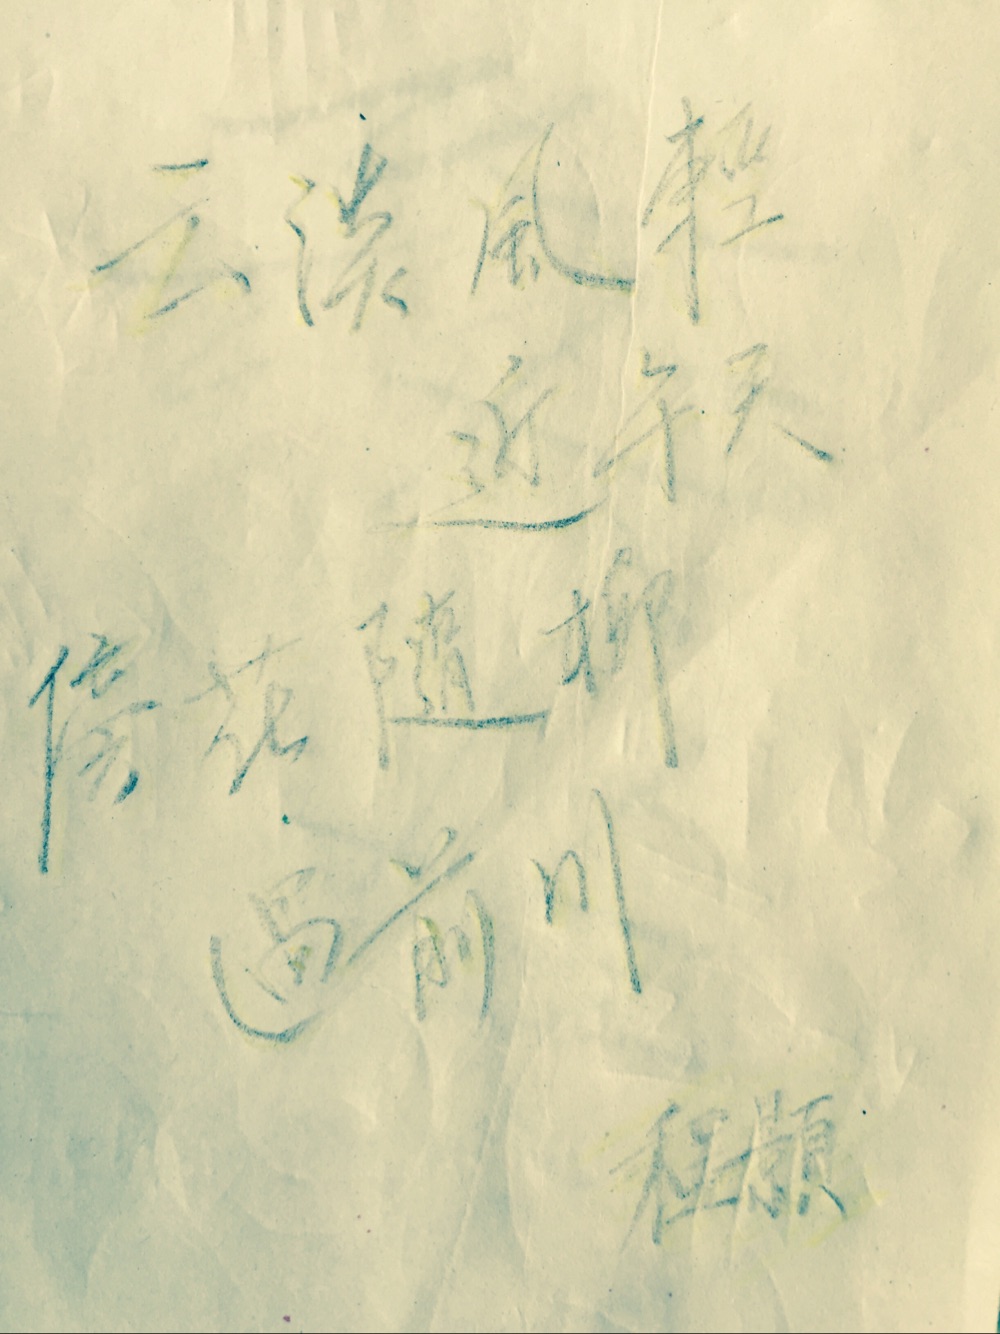 云淡風輕
近午天
傍花隨柳
過前川
程颢